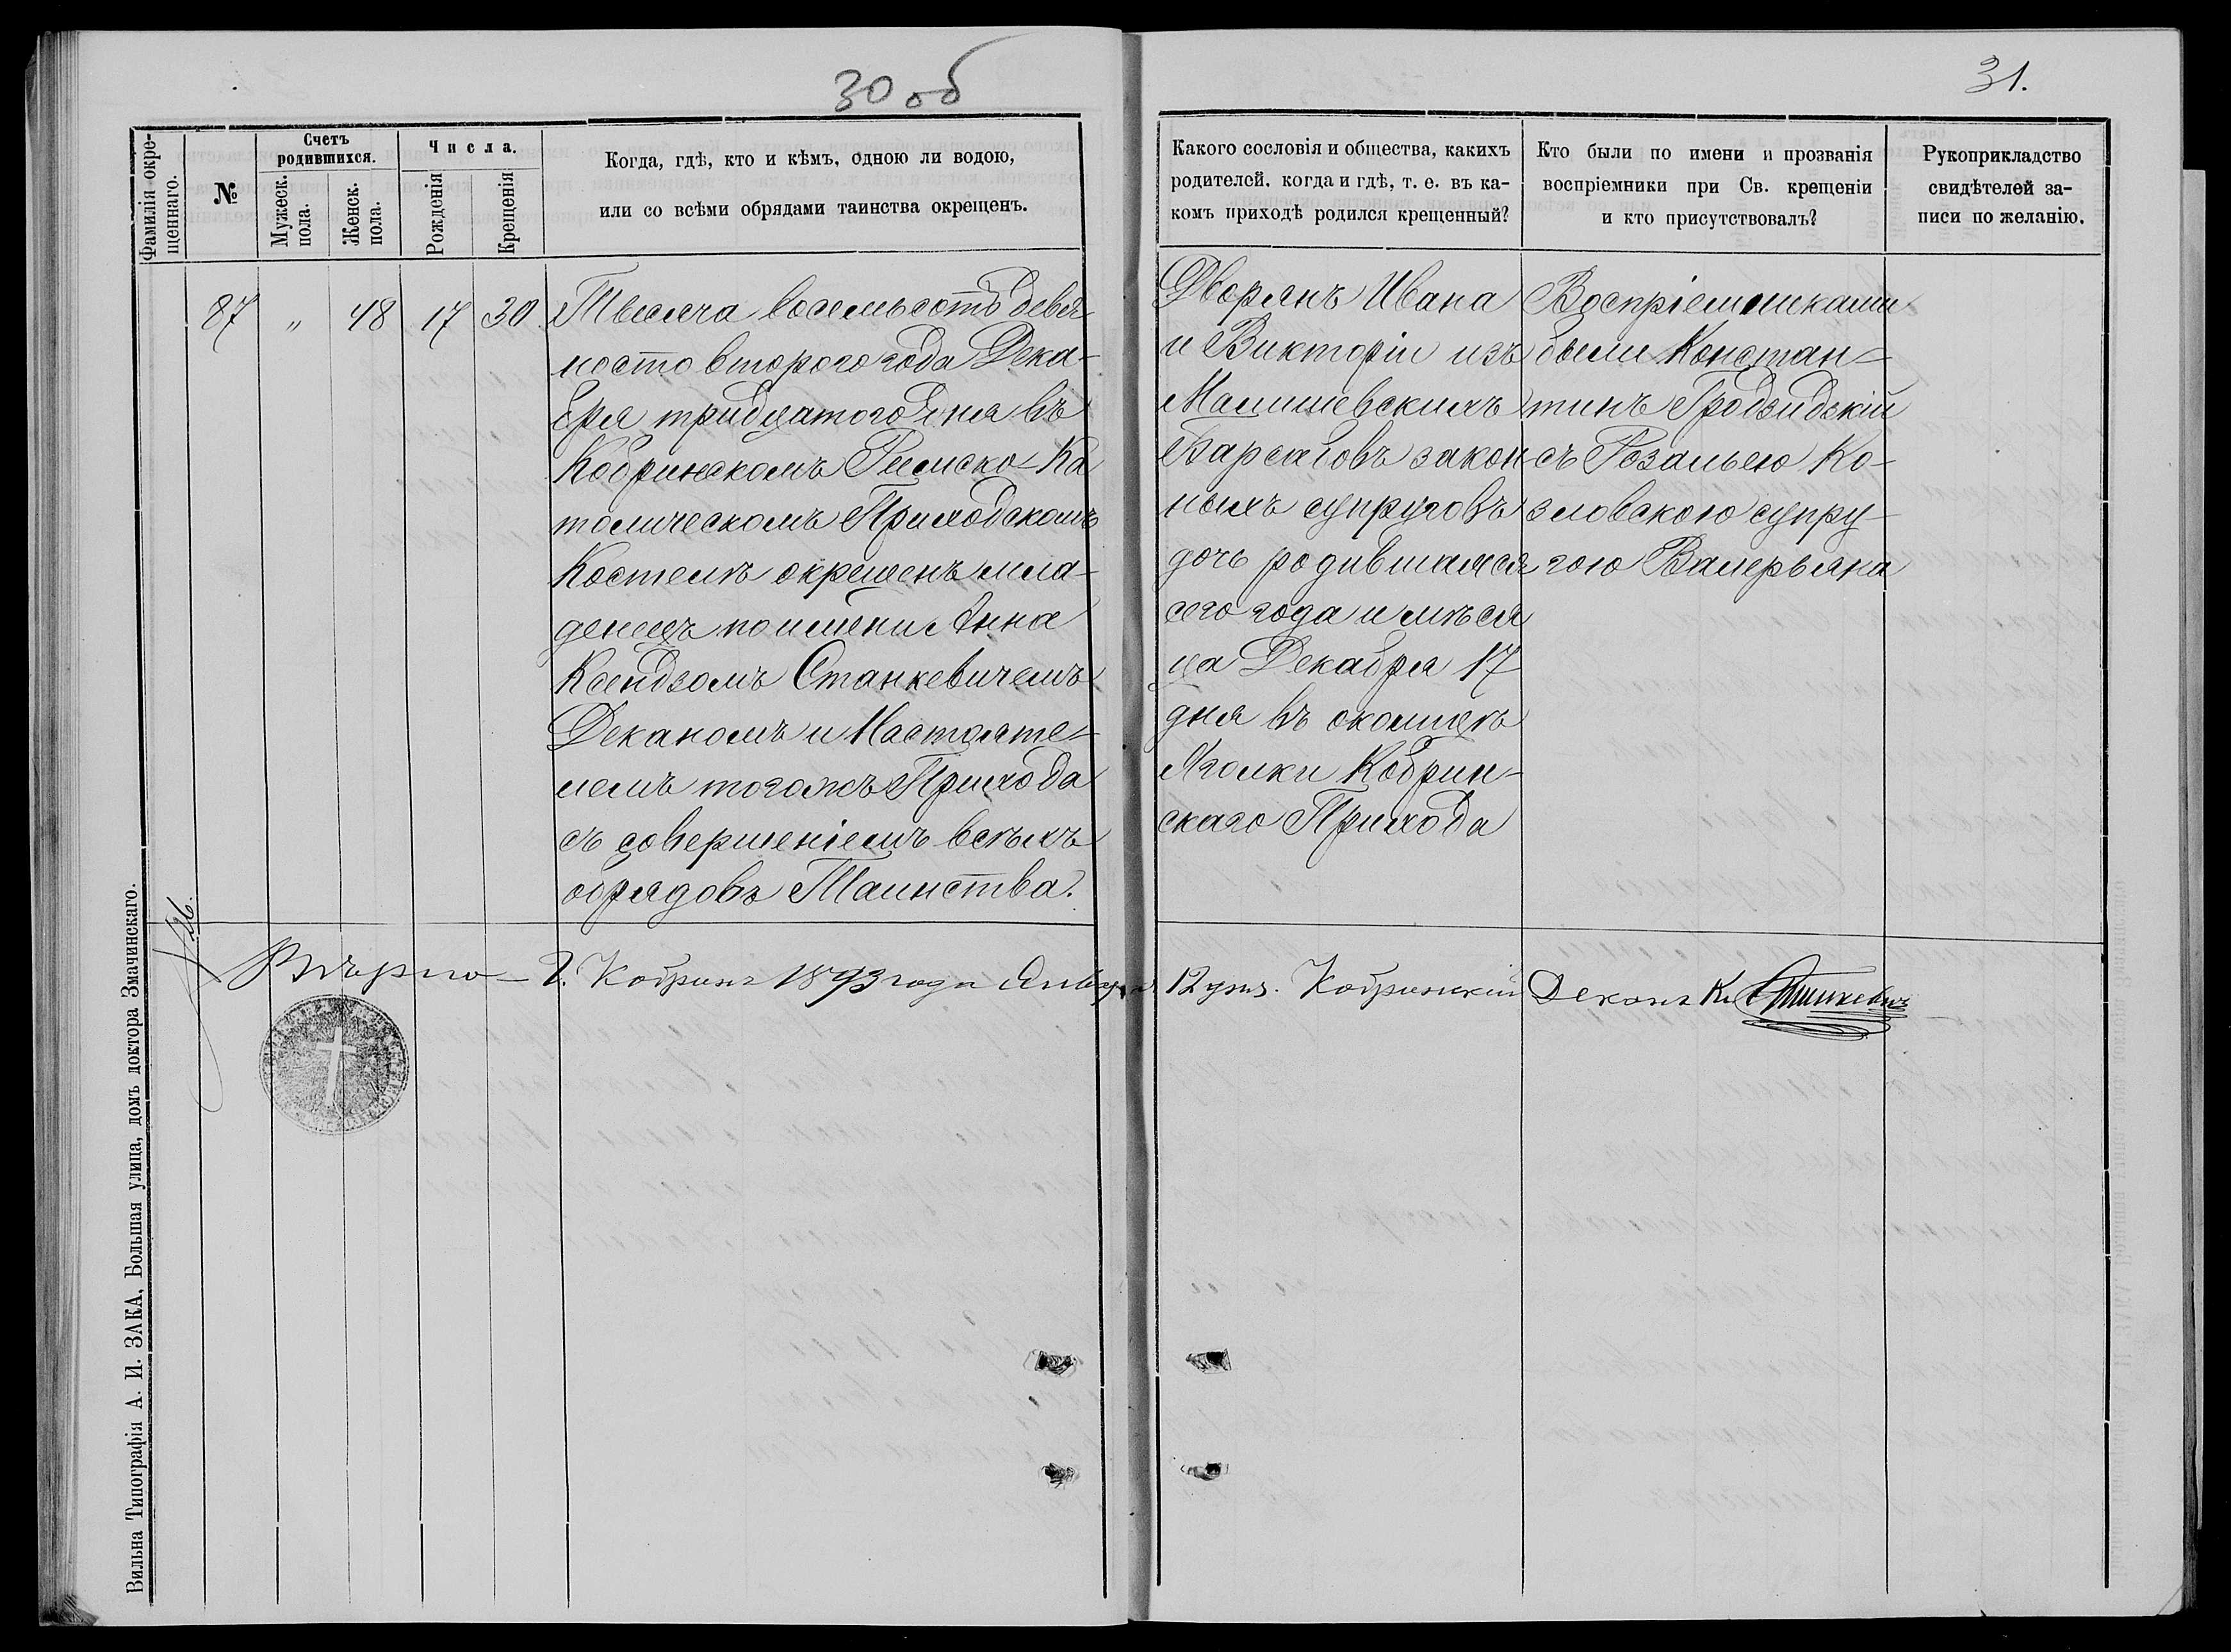 30 об
31.
Фамилія окре-
щеннаго.
№
Счетъ
родившихся.
Мужеск.
пола.
Женск.
пола.
Числа.
Рожденія
Крещенія
Когда, гдѣ, кто и кѣмъ, одною ли водою,
или со всѣми обрядами таинства окрещенъ.
Какого сословія и общества, какихъ
родителей. когда и гдѣ, т. е. въ ка-
комъ приходѣ родился крещенный?
Кто были по имени и прозванія
воспріемники при Св. крещеніи
и кто присутствовалъ?
Рукоприкладство
свидѣтелей за-
писи по желанію.
87 " 48 17 30
Тысяча восемьсотъ девя-
носто второго года Дека-
бря тридцатого дня въ
Кобринскомъ Римско-Ка
толическомъ Приходскомъ
Костелѣ окрещенъ мла-
денецъ по имени Анна
Ксендзомъ Станкевичемъ
Деканомъ и Настояте-
лемъ тогожъ Прихода
съ совершеніемъ всѣхъ
обрядовъ Таинства.
Дворянъ Ивана
и Викторіи изъ
Малишевскихъ
закон-
ныхъ супруговъ
дочь родившаяся
сего года и мѣся
ца Декабря 17
дня въ околицѣ
Яголки Кобрин-
скаго Прихода
Воспріемниками
были Констан-
тинъ Гродзидзкій
съ Розальею Ко-
зловскою супру-
гою Валерьяна
Вѣрно - Г. Кобринъ 1893 года Января 12 дня. Кобринскій Деканъ Кс. Станкевичъ
Вильна Типографія А. И. ЗАКА, Большая улица, домъ доктора Змачинскаго.